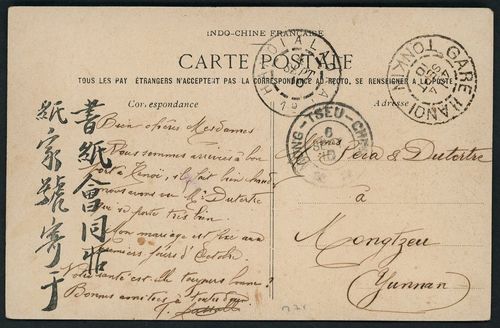 INDO-CHINE FRANÇAISE
CARTE POSTALE
TOUS LES PAYS ÉTRANGERS N'ACCEPTENT PAS LA CORRESPONDANCE AU RECTO, SE RENSEIGNER A LA POSTE
Correspondance
Adresse
Bien chères Mesdames
Nous sommes arrivés à bon
port à Hanoi, il fait bien chaud
nous avons vu Mr Dutertre
qui se porte très bien.
Mon mariage est fixé aux
premiers jours d'Octobre.
Votre santé est-elle toujours bonne?
Bonnes amitiés à toutes deux
Dutertre
à
Mongtzeu
Yunnan
書紙會同
紙家號寄于
HANOI A LAO-KAY
GARE HANOI
TONKIN
MONG-TSEU-CHINE